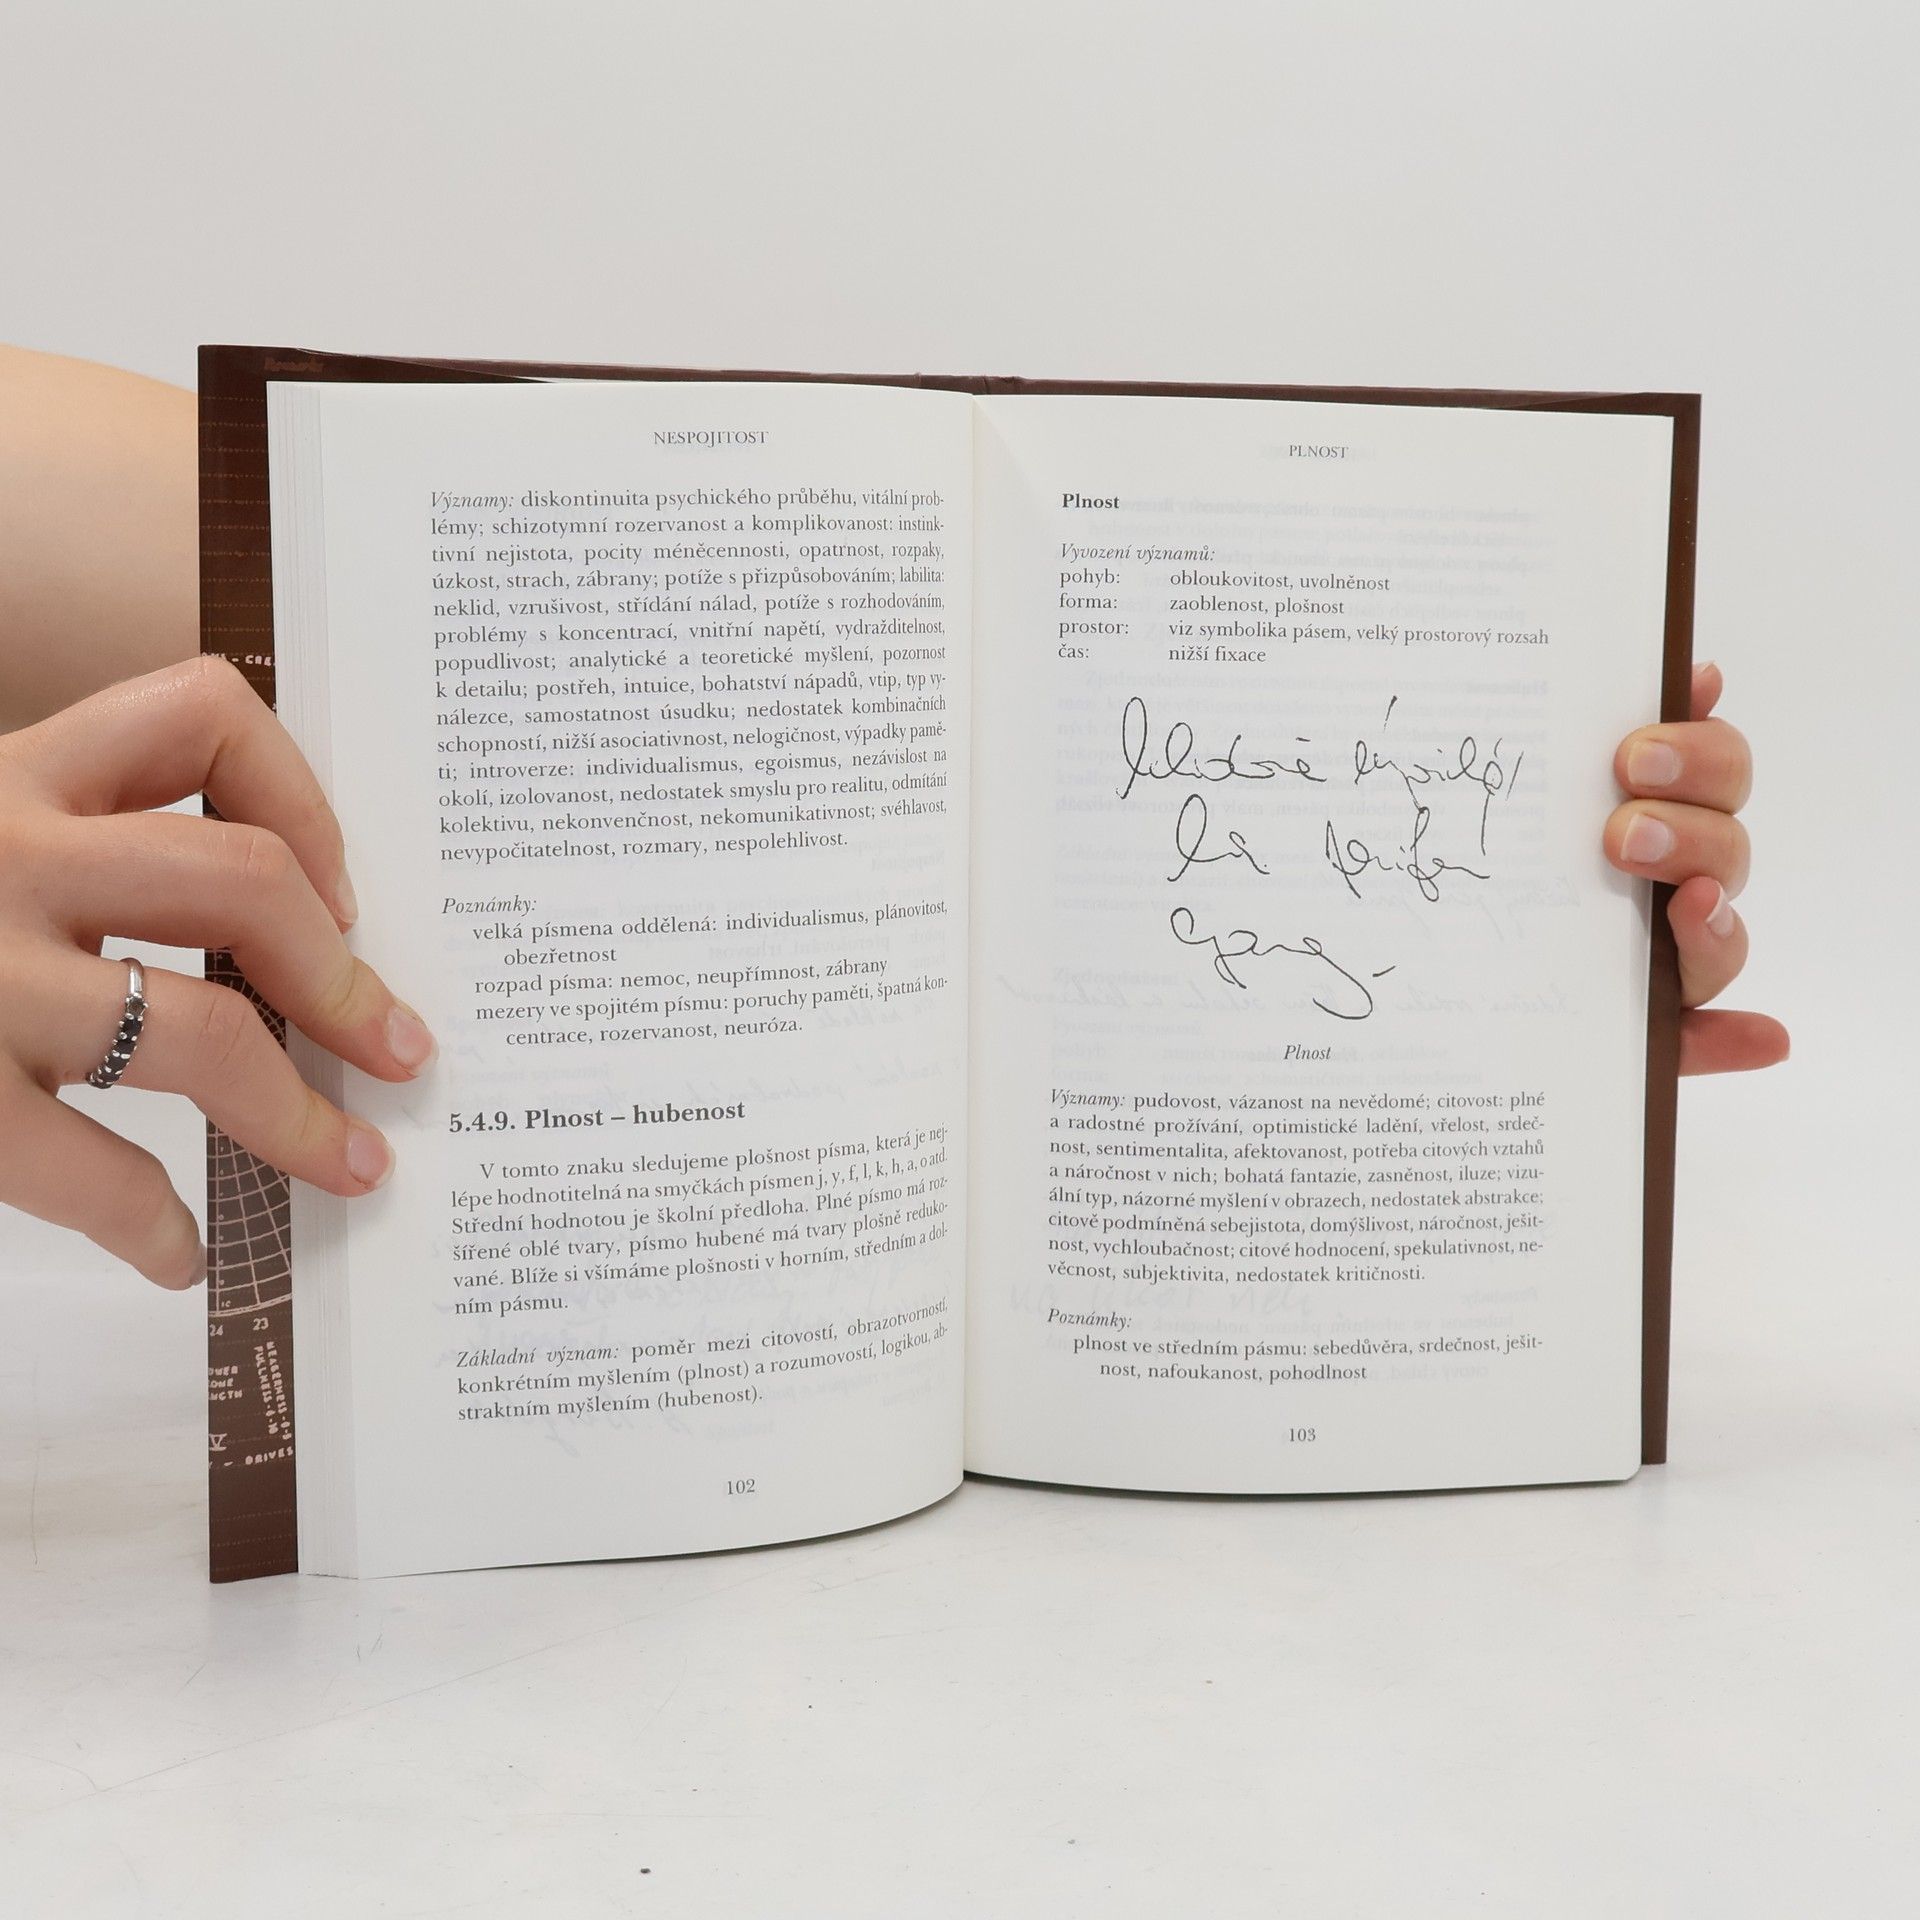 NESPOJITOST
Významy: diskontinuita psychického průběhu, vitální prob-
lémy; schizotymní rozervanost a komplikovanost: instink-
tivní nejistota, pocity méněcennosti, opatrnost, rozpaky,
úzkost, strach, zábrany; potíže s přizpůsobováním; labilita:
neklid, vzrušivost, střídání nálad, potíže s rozhodováním,
problémy s koncentrací, vnitřní napětí, vydrážditelnost,
popudlivost; analytické a teoretické myšlení, pozornost
k detailu; postřeh, intuice, bohatství nápadů, vtip, typ vy-
nálezce, samostatnost úsudku; nedostatek kombinačních
schopností, nižší asociativnost, nelogičnost, výpadky pamě-
ti; introverze: individualismus, egoismus, nezávislost na
okolí, izolovanost, nedostatek smyslu pro realitu, odmítání
kolektivu, nekonvenčnost, nekomunikativnost; svéhlavost,
nevypočitatelnost, rozmary, nespolehlivost.
Poznámky:
velká písmena oddělená: individualismus, plánovitost,
obezřetnost
rozpad písma: nemoc, neupřímnost, zábrany
mezery ve spojitém písmu: poruchy paměti, špatná kon-
centrace, rozervanost, neuróza.
5.4.9. Plnost – hubenost
V tomto znaku sledujeme plošnost písma, která je nej-
lépe hodnotitelná na smyčkách písmen j, y, f, l, k, h, a, o atd.
Střední hodnotou je školní předloha. Plné písmo má roz-
šířené oblé tvary, písmo hubené má tvary plošně reduko-
vané. Blíže si všímáme plošnosti v horním, středním a dol-
ním pásmu.
Základní význam: poměr mezi citovostí, obrazotvorností,
konkrétním myšlením (plnost) a rozumovostí, logikou, ab-
straktním myšlením (hubenost).
102
PLNOST
Plnost
Vyvození významů:
pohyb: obloukovitost, uvolněnost
forma: zaoblenost, plošnost
prostor: viz symbolika pásem, velký prostorový rozsah
čas: nižší fixace
Plnost
Významy: pudovost, vázanost na nevědomé; citovost: plné
a radostné prožívání, optimistické ladění, vřelost, srdeč-
nost, sentimentalita, afektovanost, potřeba citových vztahů
a náročnost v nich; bohatá fantazie, zasněnost, iluze; vizu-
ální typ, názorné myšlení v obrazech, nedostatek abstrakce;
citově podmíněná sebejistota, domýšlivost, náročnost, ješit-
nost, vychloubačnost; citové hodnocení, spekulativnost, ne-
věcnost, subjektivita, nedostatek kritičnosti.
Poznámky:
plnost ve středním pásmu: sebedůvěra, srdečnost, ješit-
nost, nafoukanost, pohodlnost
103
24 23